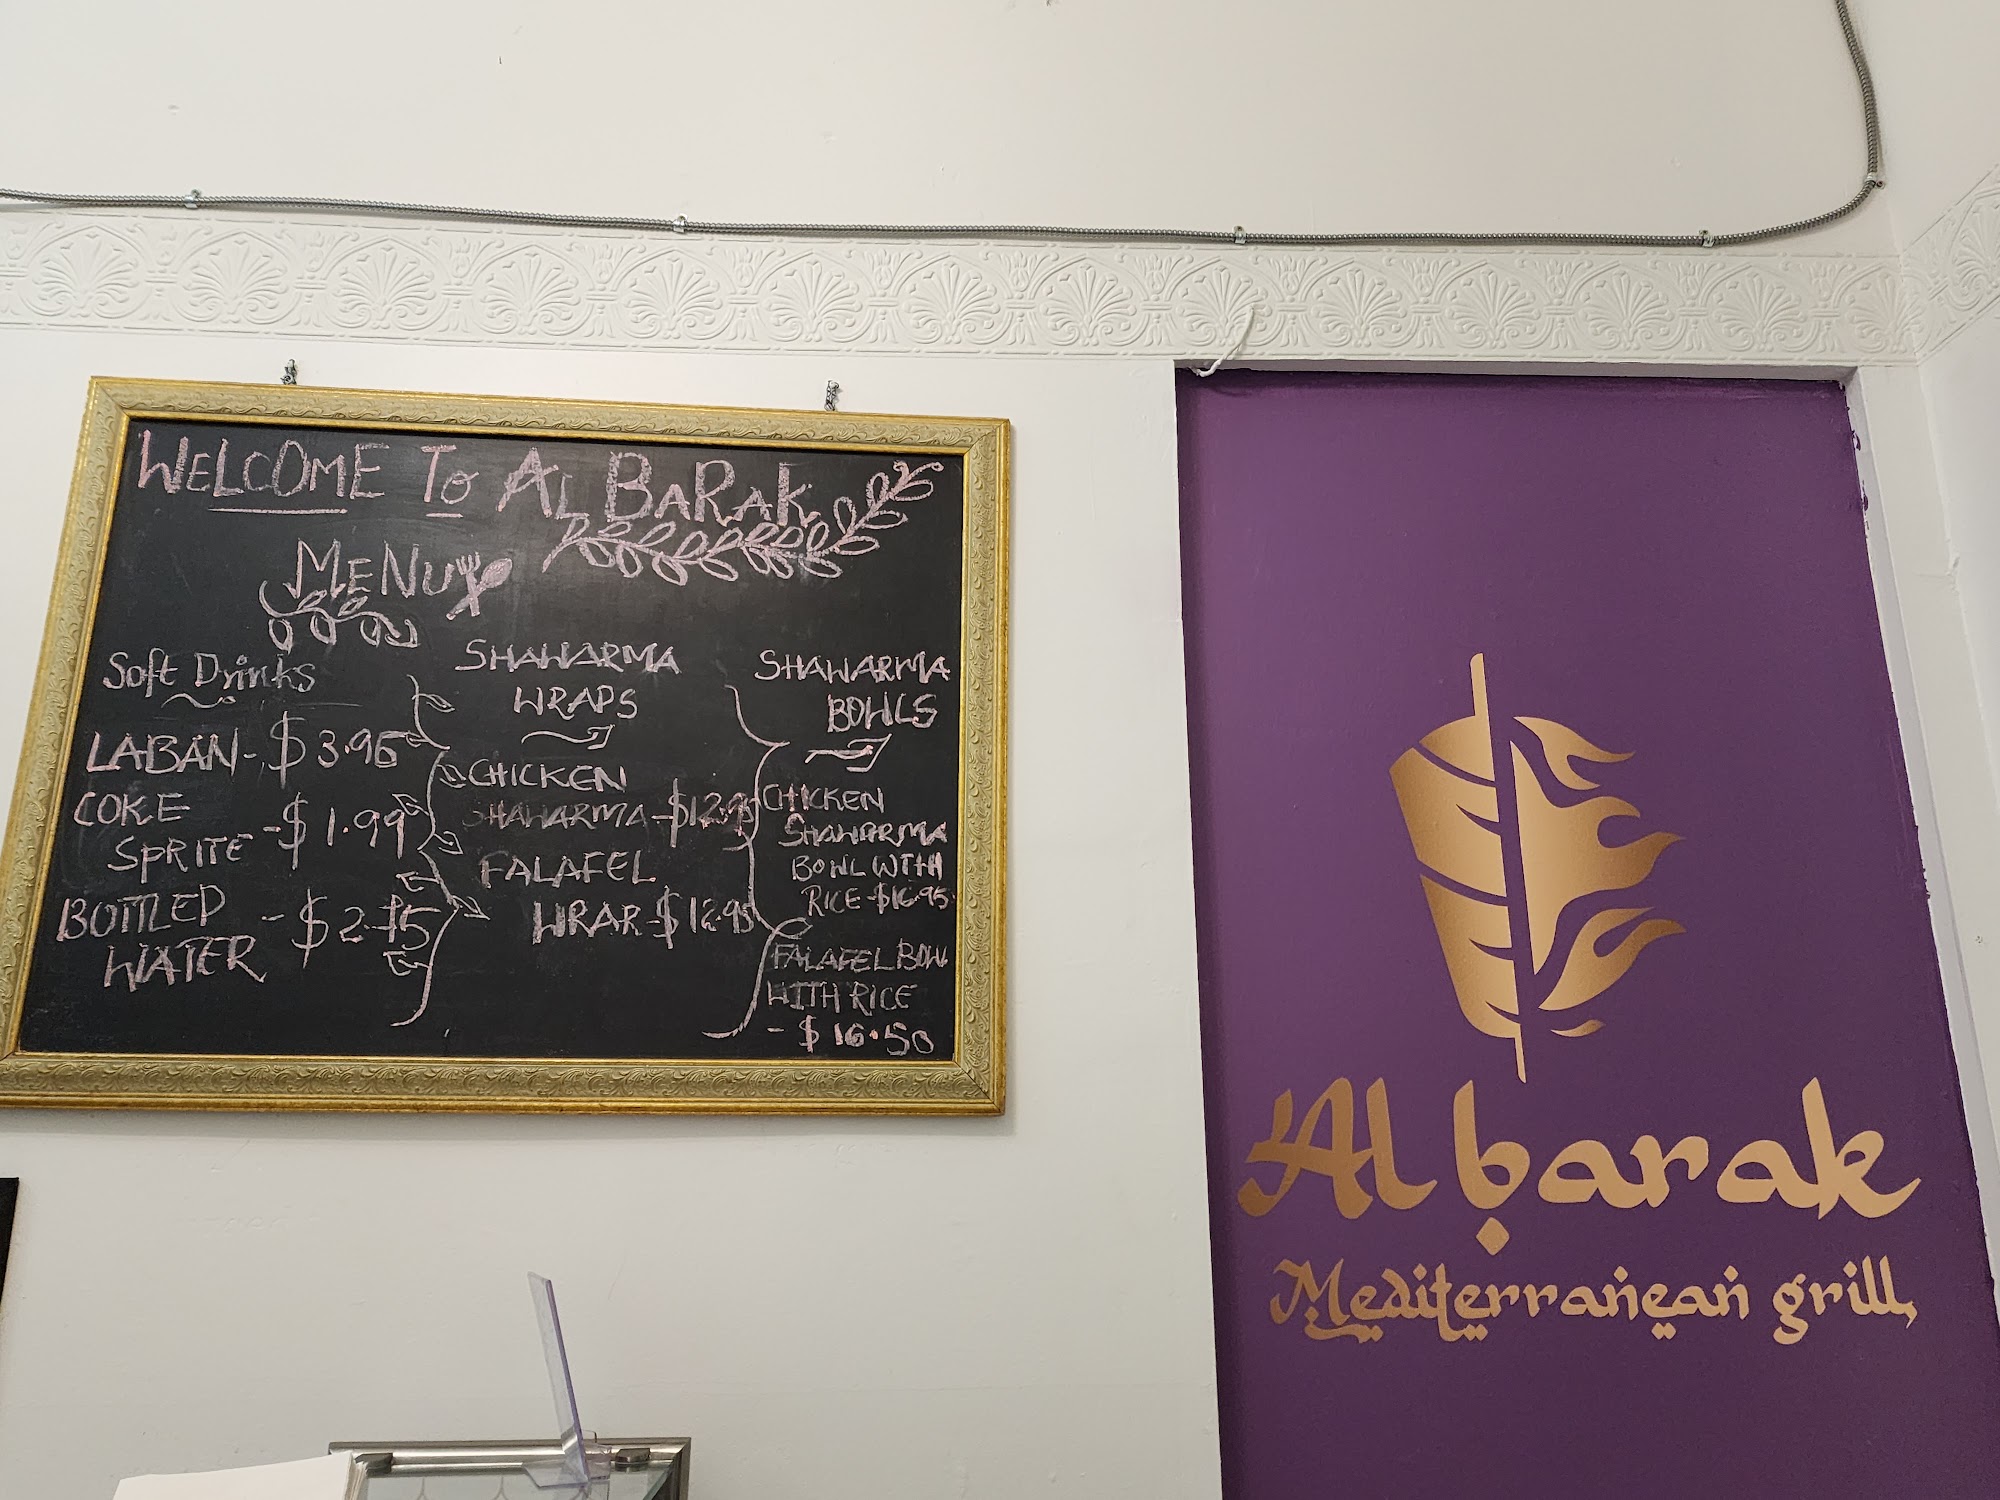 WELCOME To AL BARAK
MENU
Soft Drinks
LABAN - $3.95
COKE
SPRITE - $1.99
BOTTLED
WATER - $2.75
SHAWARMA
WRAPS
CHICKEN
SHAWARMA - $12.95
FALAFEL
WRAP - $12.95
SHAWARMA
BOWLS
CHICKEN
SHAWARMA
BOWL WITH
RICE - $16.95
FALAFEL BOWL
WITH RICE
- $16.50
Al barak
Mediterranean grill